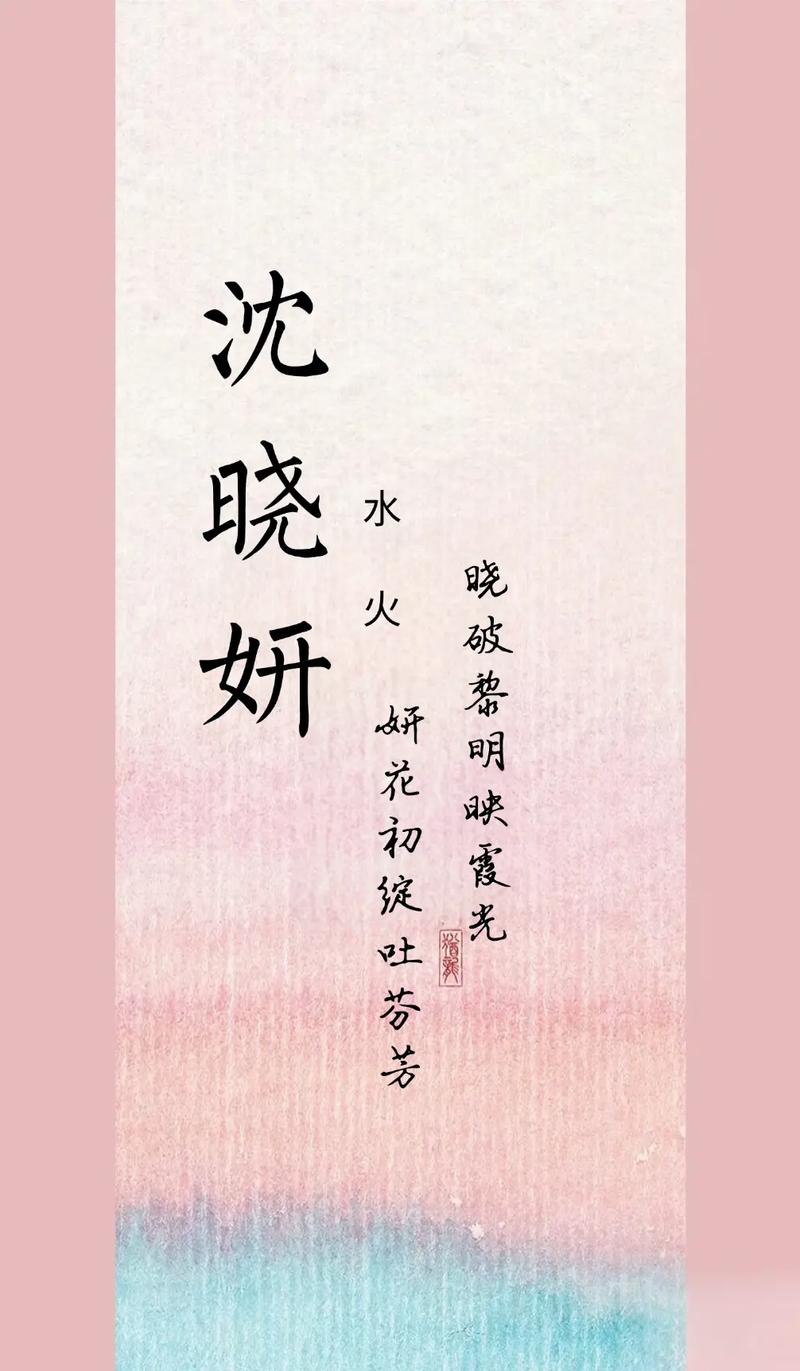 沈晓妍
水火
晓破黎明映霞光
妍花初绽吐芬芳